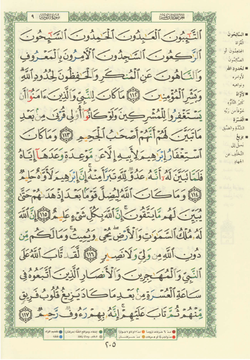 التَّائِبُونَ الْعَابِدُونَ الْحَامِدُونَ السَّائِحُونَ
الرَّاكِعُونَ السَّاجِدُونَ الْآمِرُونَ بِالْمَعْرُوفِ
وَالنَّاهُونَ عَنِ الْمُنكَرِ وَالْحَافِظُونَ لِحُدُودِ اللَّهِ
وَبَشِّرِ الْمُؤْمِنِينَ ١١٢ مَا كَانَ لِلنَّبِيِّ وَالَّذِينَ آمَنُوا أَن
يَسْتَغْفِرُوا لِلْمُشْرِكِينَ وَلَوْ كَانُوا أُولِي قُرْبَىٰ مِن بَعْدِ
مَا تَبَيَّنَ لَهُمْ أَنَّهُمْ أَصْحَابُ الْجَحِيمِ ١١٣ وَمَا كَانَ
اسْتِغْفَارُ إِبْرَاهِيمَ لِأَبِيهِ إِلَّا عَن مَّوْعِدَةٍ وَعَدَهَا إِيَّاهُ
فَلَمَّا تَبَيَّنَ لَهُ أَنَّهُ عَدُوٌّ لِّلَّهِ تَبَرَّأَ مِنْهُ إِنَّ إِبْرَاهِيمَ لَأَوَّاهٌ حَلِيمٌ
١١٤ وَمَا كَانَ اللَّهُ لِيُضِلَّ قَوْمًا بَعْدَ إِذْ هَدَاهُمْ حَتَّىٰ
يُبَيِّنَ لَهُم مَّا يَتَّقُونَ إِنَّ اللَّهَ بِكُلِّ شَيْءٍ عَلِيمٌ ١١٥ إِنَّ اللَّهَ
لَهُ مُلْكُ السَّمَاوَاتِ وَالْأَرْضِ يُحْيِي وَيُمِيتُ وَمَا لَكُم مِّن
دُونِ اللَّهِ مِن وَلِيٍّ وَلَا نَصِيرٍ ١١٦ لَّقَد تَّابَ اللَّهُ عَلَى
النَّبِيِّ وَالْمُهَاجِرِينَ وَالْأَنصَارِ الَّذِينَ اتَّبَعُوهُ فِي
سَاعَةِ الْعُسْرَةِ مِن بَعْدِ مَا كَادَ يَزِيغُ قُلُوبُ فَرِيقٍ
مِّنْهُمْ ثُمَّ تَابَ عَلَيْهِمْ إِنَّهُ بِهِمْ رَءُوفٌ رَّحِيمٌ ١١٧
٢٠٥